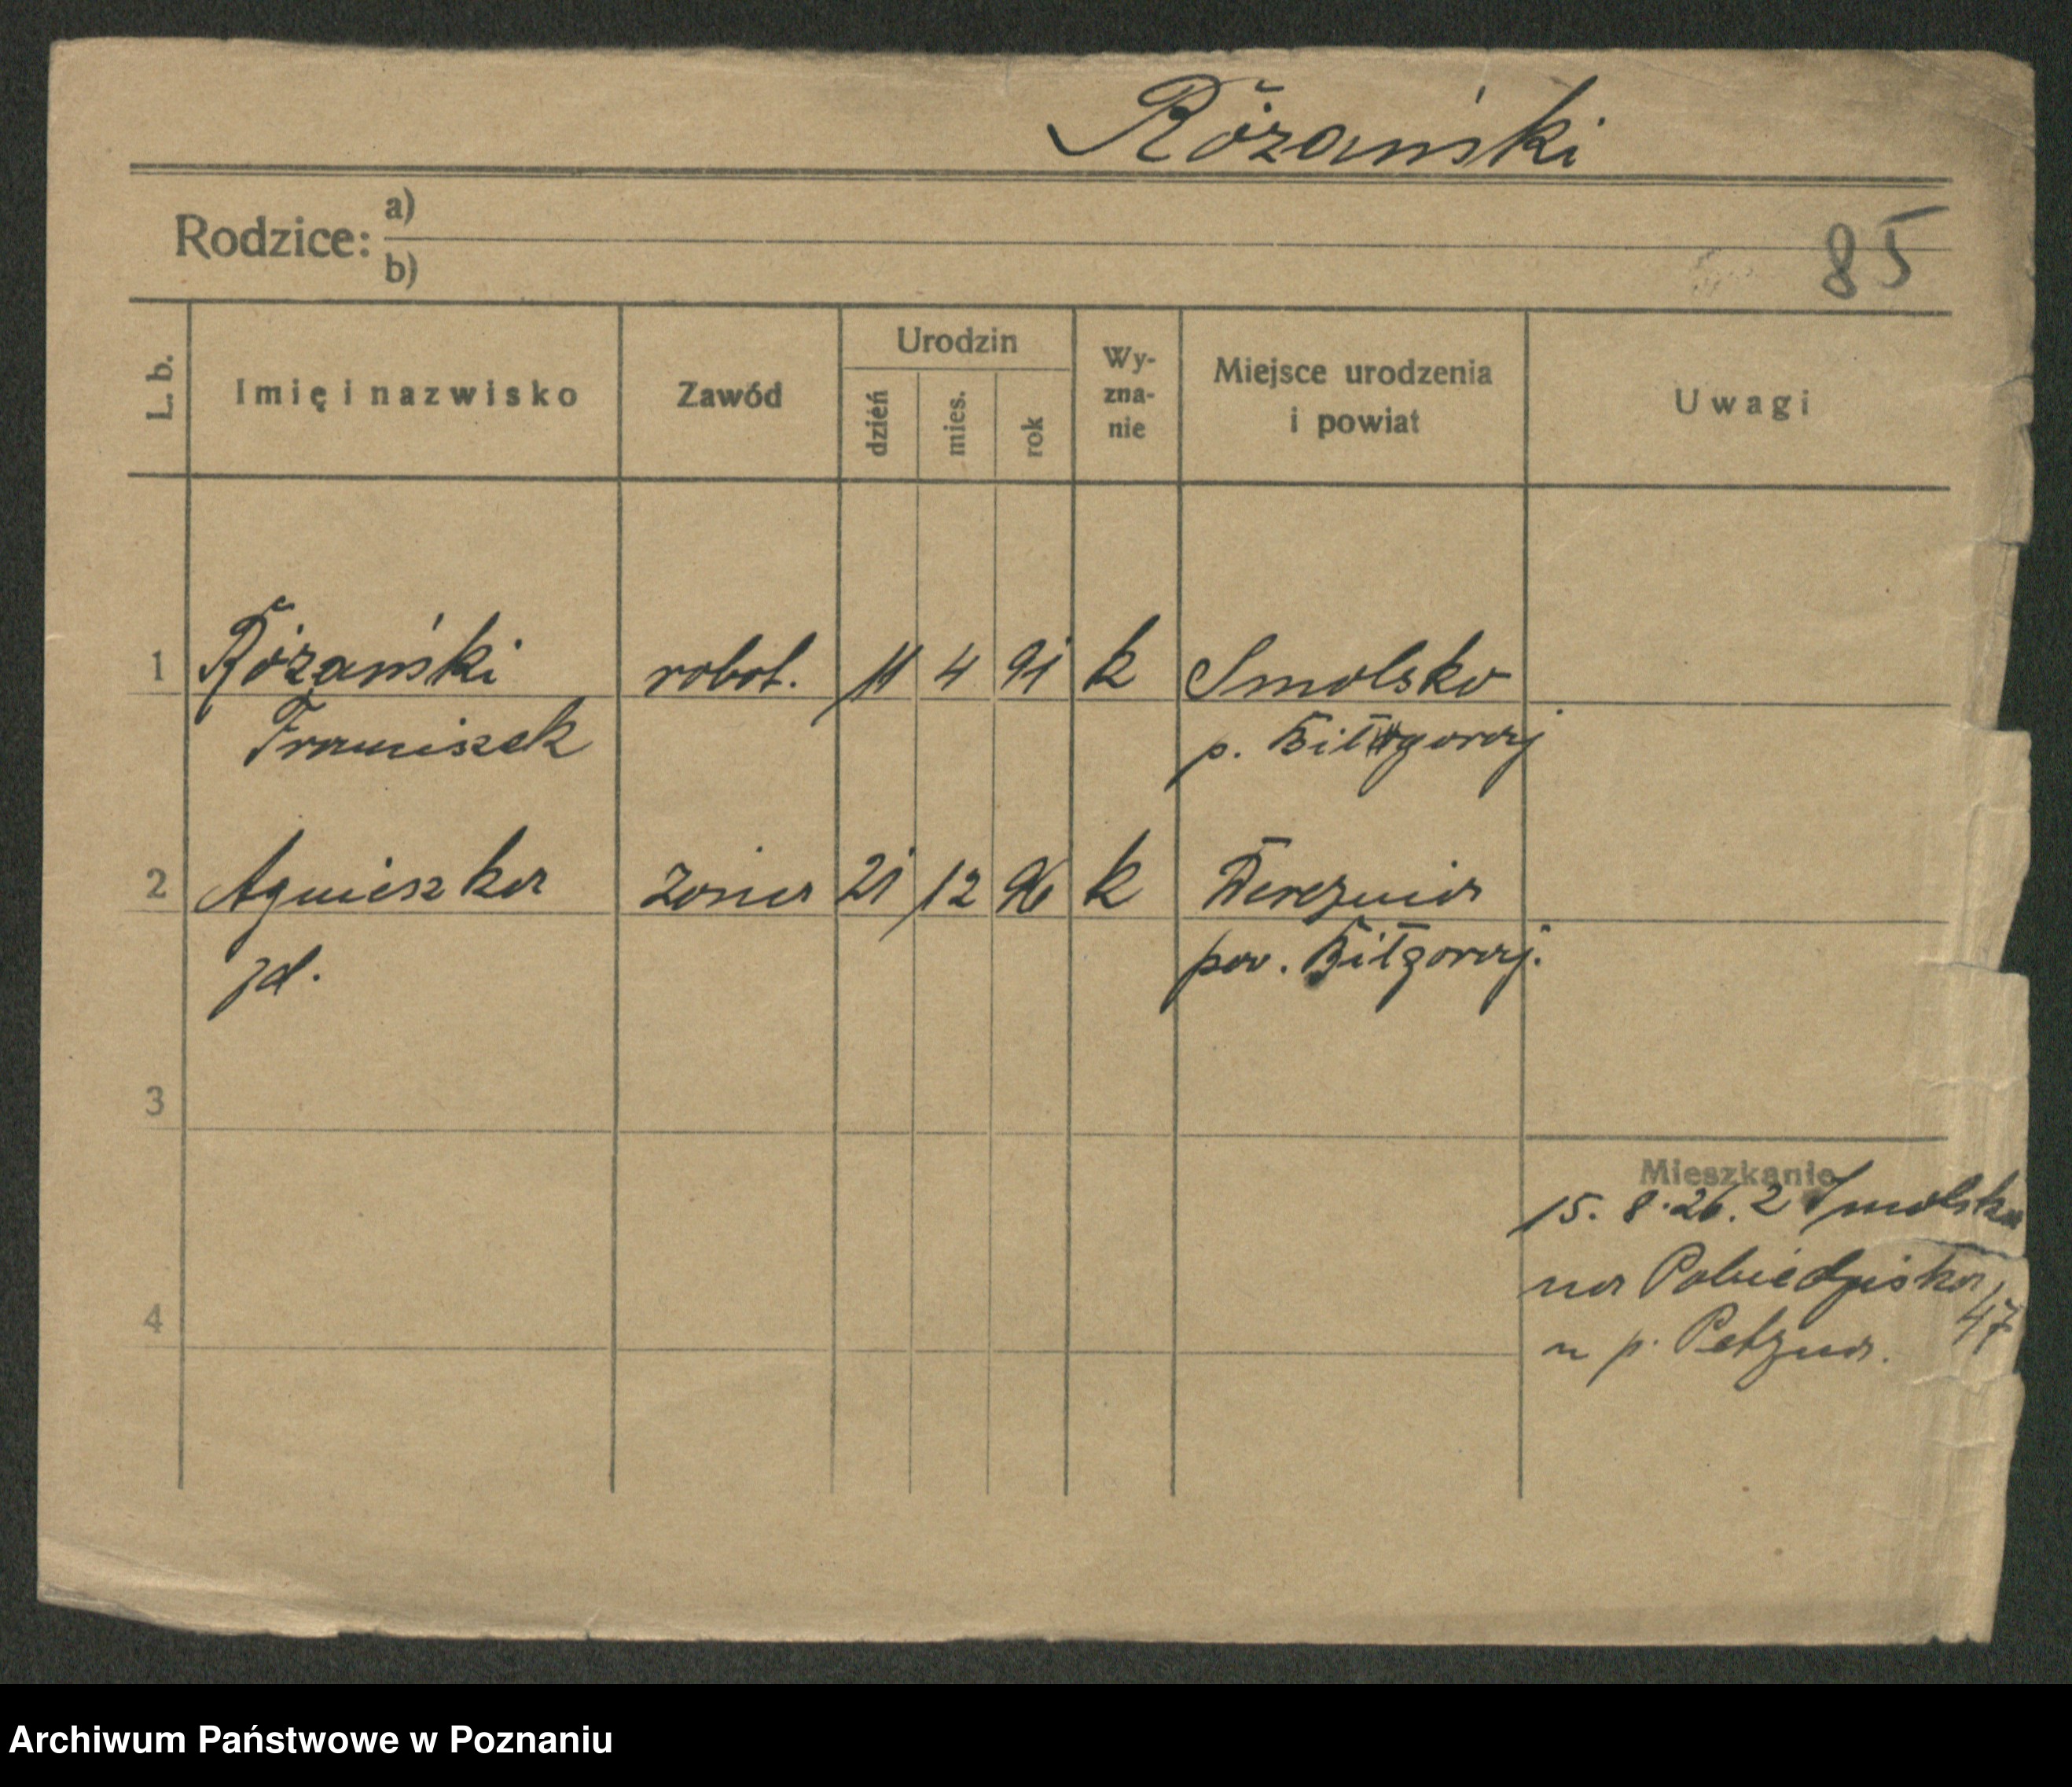 Różański
Rodzice: a)
b)
85
L. b. Imię i nazwisko Zawód Urodzin dzień mies. rok Wy-zna-nie Miejsce urodzenia i powiat Uwagi
1 Różański robot. 11 4 91 k Smolsko
Franciszek p. Biłgoraj
2 Agnieszka żona 21 12 96 k
zd. pow. Biłgoraj.
3
Mieszkanie
15. 8. 26. z Smolska
na Pobiedziska
47
u p.
4
Archiwum Państwowe w Poznaniu